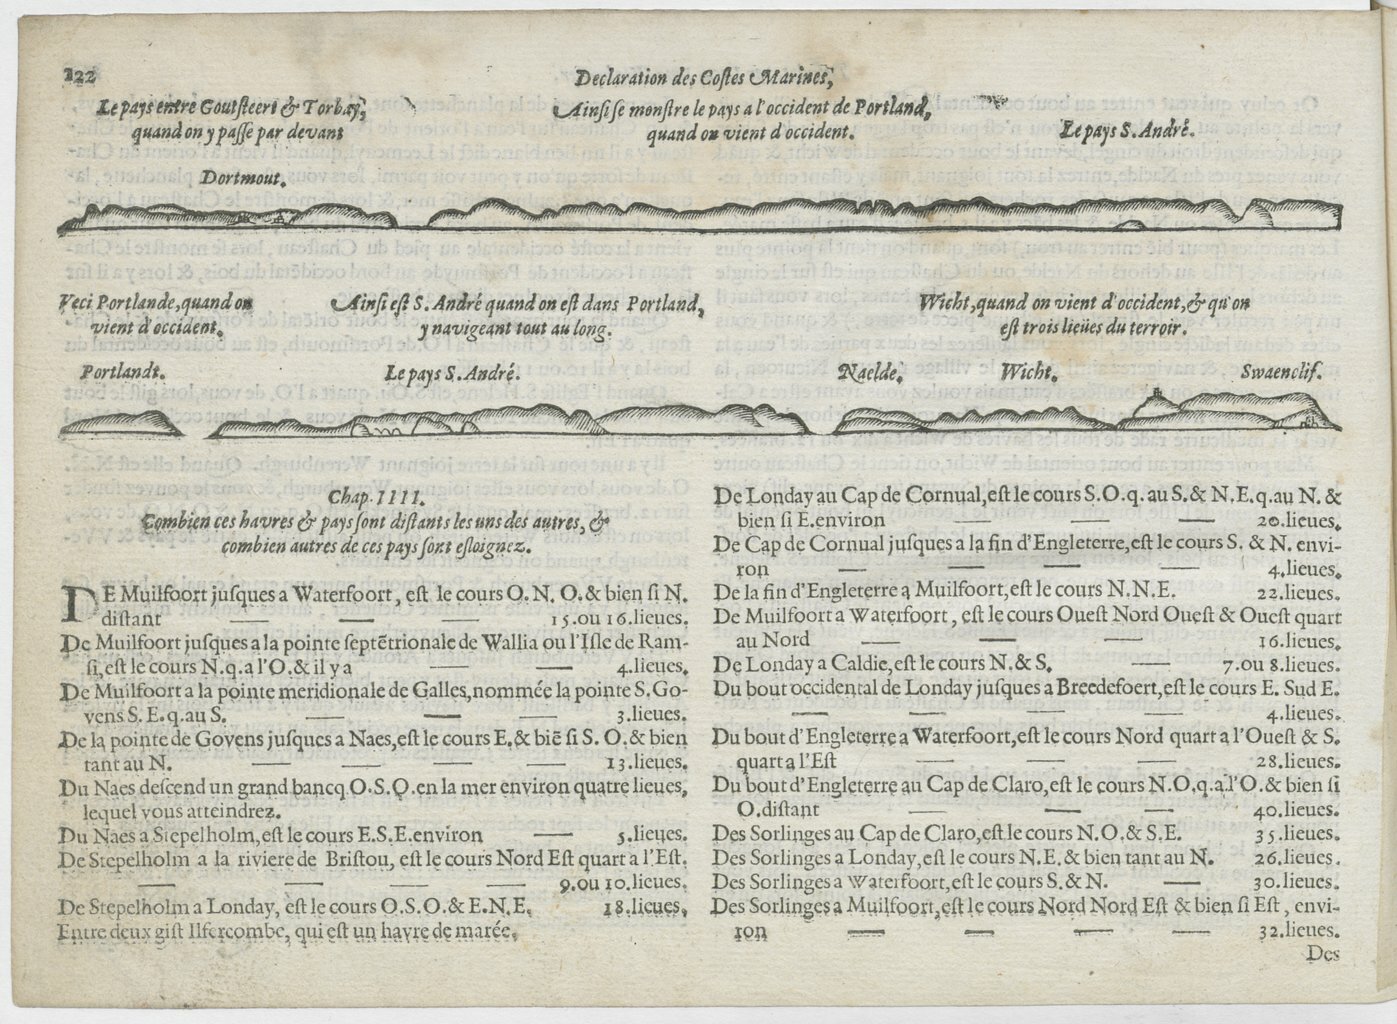 122
Declaration des Costes Marines,
Le pays entre Goutsteert & Torbay,
quand on y passe par devant
Ainsi se monstre le pays a l'occident de Portland,
quand on vient d'occident.
Le pays S. André.
Dortmout.
Veci Portlande, quand on
vient d'occident.
Ainsi est S. André quand on est dans Portland,
y navigeant tout au long.
Wicht, quand on vient d'occident, & qu'on
est trois lieües du terroir.
Portlandt.
Le pays S. André.
Naelde.
Wicht.
Swaenclif.
Chap. IIII.
Combien ces havres & pays sont distants les uns des autres, &
combien autres de ces pays sont esloignez.
DE Muilfoort jusques a Waterfoort, est le cours O. N. O. & bien si N.
distant — — — 15. ou 16. lieues.
De Muilfoort jusques a la pointe septētrionale de Wallia ou l'Isle de Ram-
si, est le cours N. q. a l'O. & il y a — — 4. lieues.
De Muilfoort a la pointe meridionale de Galles, nommée la pointe S. Go-
vens S. E. q. au S. — — — 3. lieues.
De la pointe de Govens jusques a Naes, est le cours E. & biē si S. O. & bien
tant au N. — — — — 13. lieues.
Du Naes descend un grand bancq O. S. O. en la mer environ quatre lieues,
lequel vous atteindrez.
Du Naes a Stepelholm, est le cours E. S. E. environ — 5. lieues.
De Stepelholm a la riviere de Bristou, est le cours Nord Est quart a l'Est.
— — — — 9. ou 10. lieues.
De Stepelholm a Londay, est le cours O. S. O. & E. N. E. 18. lieues.
Entre deux gist Ilfercombe, qui est un havre de marée.
De Londay au Cap de Cornual, est le cours S. O. q. au S. & N. E. q. au N. &
bien si E. environ — — — 20. lieues.
De Cap de Cornual jusques a la fin d'Engleterre, est le cours S. & N. envi-
ron — — — — 4. lieues.
De la fin d'Engleterre a Muilfoort, est le cours N. N. E. 22. lieues.
De Muilfoort a Waterfoort, est le cours Ouest Nord Ouest & Ouest quart
au Nord — — — 16. lieues.
De Londay a Caldie, est le cours N. & S. — 7. ou 8. lieues.
Du bout occidental de Londay jusques a Breedefoert, est le cours E. Sud E.
— — — — 4. lieues.
Du bout d'Engleterre a Waterfoort, est le cours Nord quart a l'Ouest & S.
quart a l'Est — — — 28. lieues.
Du bout d'Engleterre au Cap de Claro, est le cours N. O. q. a l'O. & bien si
O. distant — — — 40. lieues.
Des Sorlinges au Cap de Claro, est le cours N. O. & S. E. 35. lieues.
Des Sorlinges a Londay, est le cours N. E. & bien tant au N. 26. lieues.
Des Sorlinges a Waterfoort, est le cours S. & N. — 30. lieues.
Des Sorlinges a Muilfoort, est le cours Nord Nord Est & bien si Est, envi-
ron — — — — 32. lieues.
Des